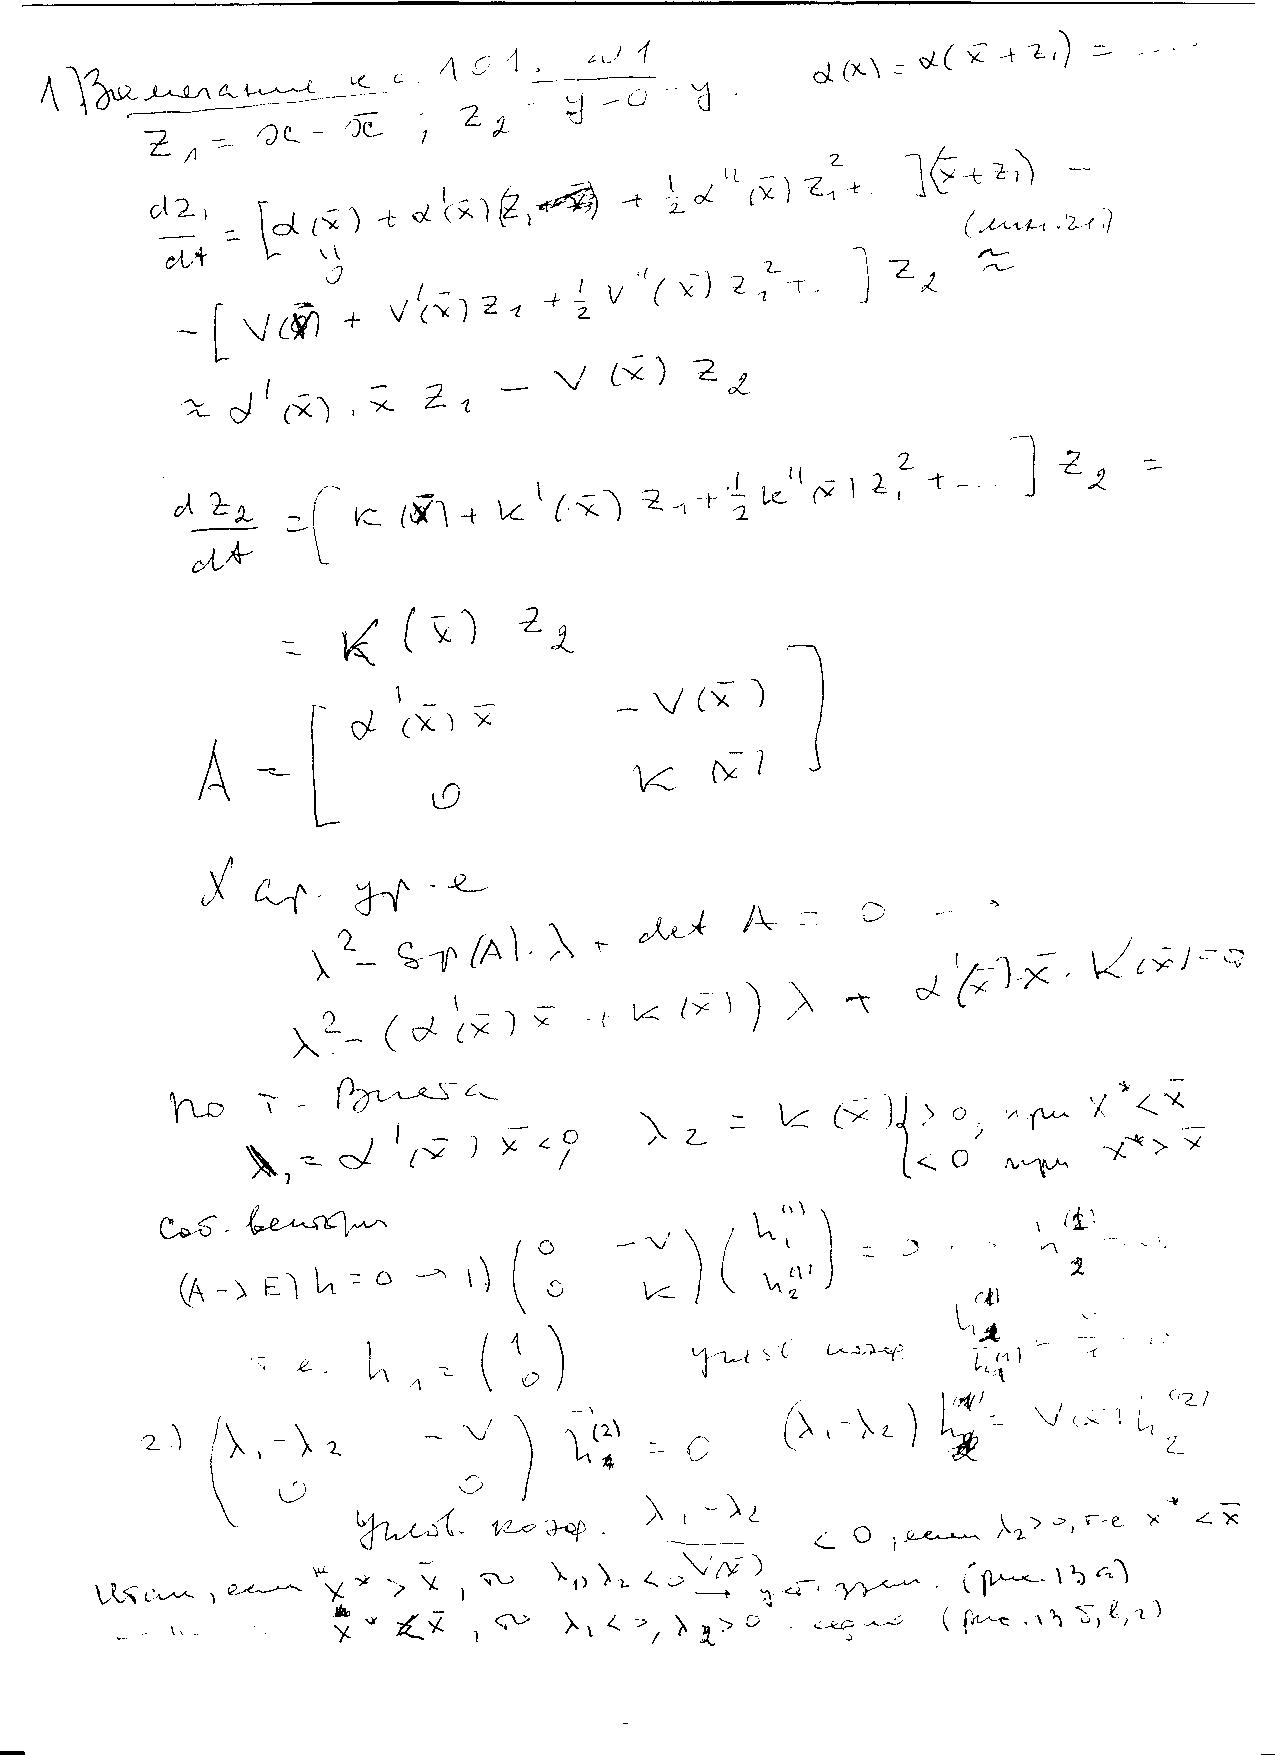 1) Замечание к с. 101.
α(x) = α(x̄ + z₁) = ....
z₁ = x - x̄ ; z₂ = y - 0 = y.
dz₁/dt = [α(x̄) + α'(x̄)(z₁) + ½ α''(x̄) z₁² + . ](x̄ + z₁) -
|| 0
- [V(x̄) + V'(x̄) z₁ + ½ V''(x̄) z₁² + . ] z₂ ≈
≈ α'(x̄) . x̄ z₁ - V(x̄) z₂
dz₂/dt = [K(x̄) + K'(x̄) z₁ + ½ K''(x̄) z₁² + ... ] z₂ =
= K(x̄) z₂
A = [ α'(x̄) x̄   - V(x̄)
0   K(x̄) ]
Хар. ур-е
λ² - Sp(A).λ + det A = 0
λ² - (α'(x̄) x̄ + K(x̄)) λ + α'(x̄) . x̄ . K(x̄) = 0
по т. Виета
λ₁ = α'(x̄) x̄ < 0, λ₂ = K(x̄) { > 0, при x* < x̄
< 0 при x* > x̄
Соб. векторы
(A - λE) h = 0 → 1) (0 -V; 0 K) (h₁⁽¹⁾; h₂⁽¹⁾) = 0 ... h₂⁽¹⁾ ...
т.е. h₁ = (1; 0) углов. коэф. h₂⁽¹⁾/h₁⁽¹⁾ = 0/1 = 0
2) (λ₁-λ₂ -V; 0 0) h⁽²⁾ = 0 (λ₁-λ₂) h = V(x̄) h₂⁽²⁾
Углов. коэф. (λ₁-λ₂)/V(x̄) < 0, если λ₂ > 0, т.е x* < x̄
Итак, если x* > x̄, то λ₁, λ₂ < 0 → уст. узел. (рис. 13 а)
x* < x̄, то λ₁ < 0, λ₂ > 0 . седло (рис. 13 б, в, г)